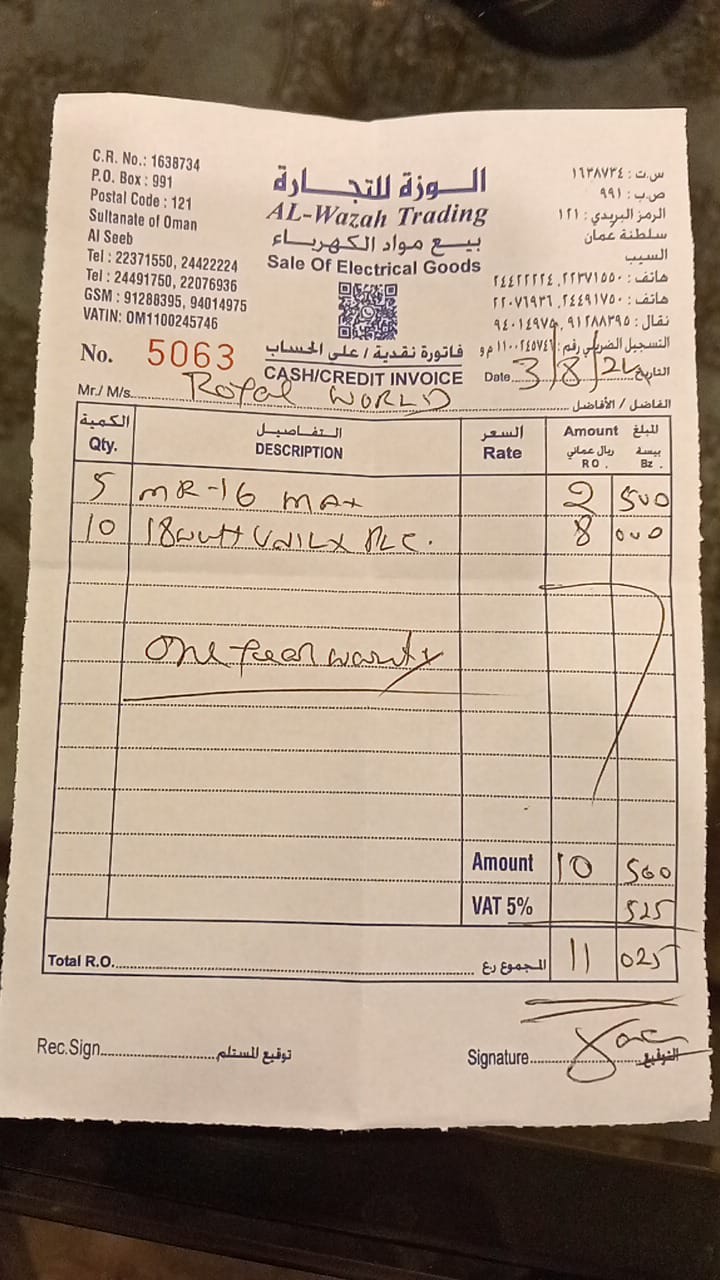 C.R. No.: 1638734
P.O. Box : 991
Postal Code : 121
Sultanate of Oman
Al Seeb
Tel : 22371550, 24422224
Tel : 24491750, 22076936
GSM : 91288395, 94014975
VATIN: OM1100245746
الوزة للتجارة
AL-Wazah Trading
بيع مواد الكهرباء
Sale Of Electrical Goods
س.ت : ١٦٣٨٧٣٤
ص.ب : ٩٩١
الرمز البريدي : ١٢١
سلطنة عمان
السيب
هاتف : ٢٢٣٧١٥٥٠، ٢٤٤٢٢٢٢٤
هاتف : ٢٤٤٩١٧٥٠، ٢٢٠٧٦٩٣٦
نقال : ٩١٢٨٨٣٩٥، ٩٤٠١٤٩٧٥
التسجيل الضريبي رقم: ١١٠٠٢٤٥٧٤٦ م و
No. 5063
فاتورة نقدية / على الحساب
CASH/CREDIT INVOICE
Date 3/8/24 التاريخ
Mr./ M/s. ROYAL WORLD الفاضل / الأفاضل
الكمية التفاصيل السعر Amount المبلغ
Qty. DESCRIPTION Rate ريال عماني R O . بيسة Bz .
5 MR-16 MAX 2 500
10 18watt PLC. 8 000
One year
Amount 10 500
VAT 5% 525
Total R.O. المجموع رع 11 025
Rec.Sign توقيع المستلم
Signature التوقيع